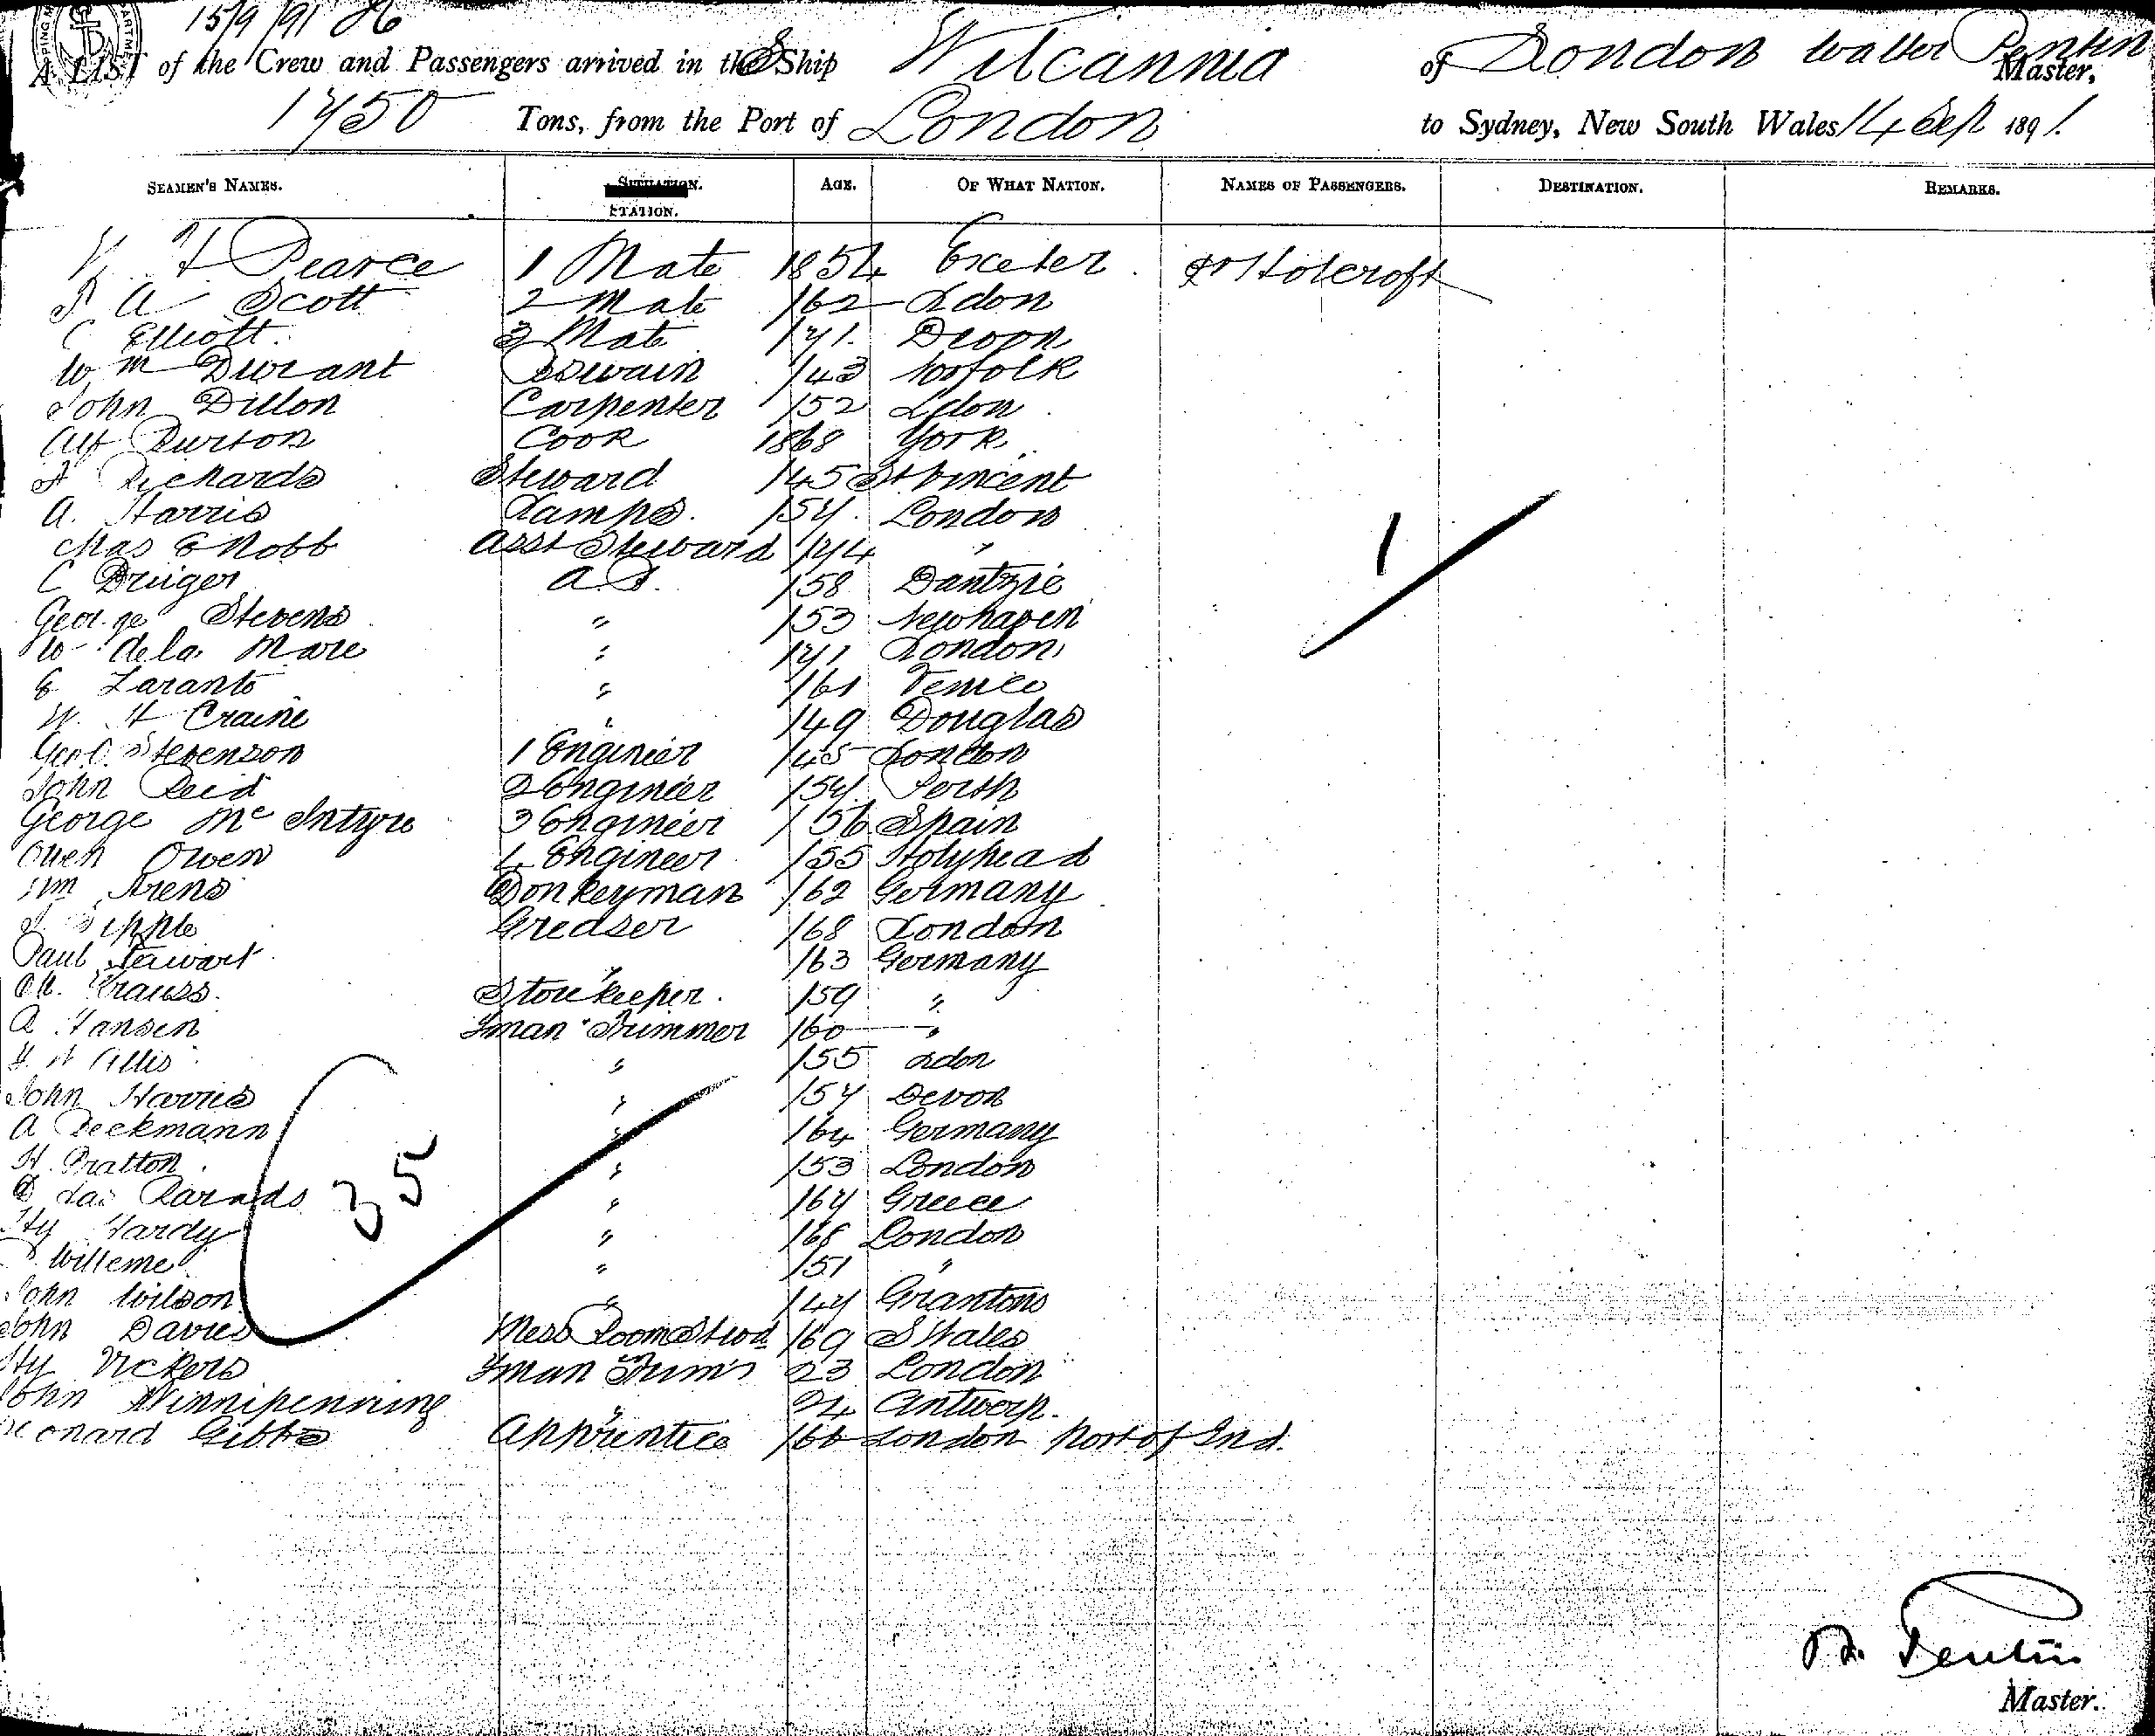 15/9/91 86
A LIST of the Crew and Passengers arrived in the S Ship Wilcannia of London Walter Pentin Master,
1750 Tons, from the Port of London to Sydney, New South Wales 14 Sep 1891.
SEAMEN'S NAMES. SITUATION. STATION. AGE. OF WHAT NATION. NAMES OF PASSENGERS. DESTINATION. REMARKS.
Pearce 1 Mate 1854 Exeter Holcroft
A Scott 2 Mate /62 Ldon
C Elliott 3 Mate /71 Devon
Wm Durant Bswain /43 Norfolk
John Dillon Carpenter /52 Ldon
Alf Burton Cook 1868 York
Richards Steward /45 St Vincent
A. Harris Lamps /54 London
Chas E Nobb Asst Steward /74 "
C Druger A.B. /58 Dantzic
George Stevens " /53 Newhaven
W de la Mare " /71 London
E Zaranto " /61 Venice
W. H Craine " /49 Douglas
Geo C. Stevenson 1 Engineer /45 London
John Reid 2 Engineer /54 Perth
George McIntyre 3 Engineer /56 Spain
Owen Owen 4 Engineer /55 Holyhead
Wm Arens Donkeyman /62 Germany
Sipple Greaser /68 London
Paul Stewart " /63 Germany
Krauss Storekeeper /59 "
A Hansen Fman Trimmer /60 "
Allis " /55 Ldon
John Harris " /54 Devon
A Beckmann " /64 Germany
H. Bratton " /53 London
" /64 Greece
Hy Hardy " /68 London
Willeme " /51 "
John Wilson " /47 Granton
John Davies Mess Room Stwd /69 S Wales
Hy Vickers Fman Trimr 23 London
John Winnipenning " 24 Antwerp
Leonard Gibbs Apprentice /66 London Port of Ind.
35
1
Pentin
Master.